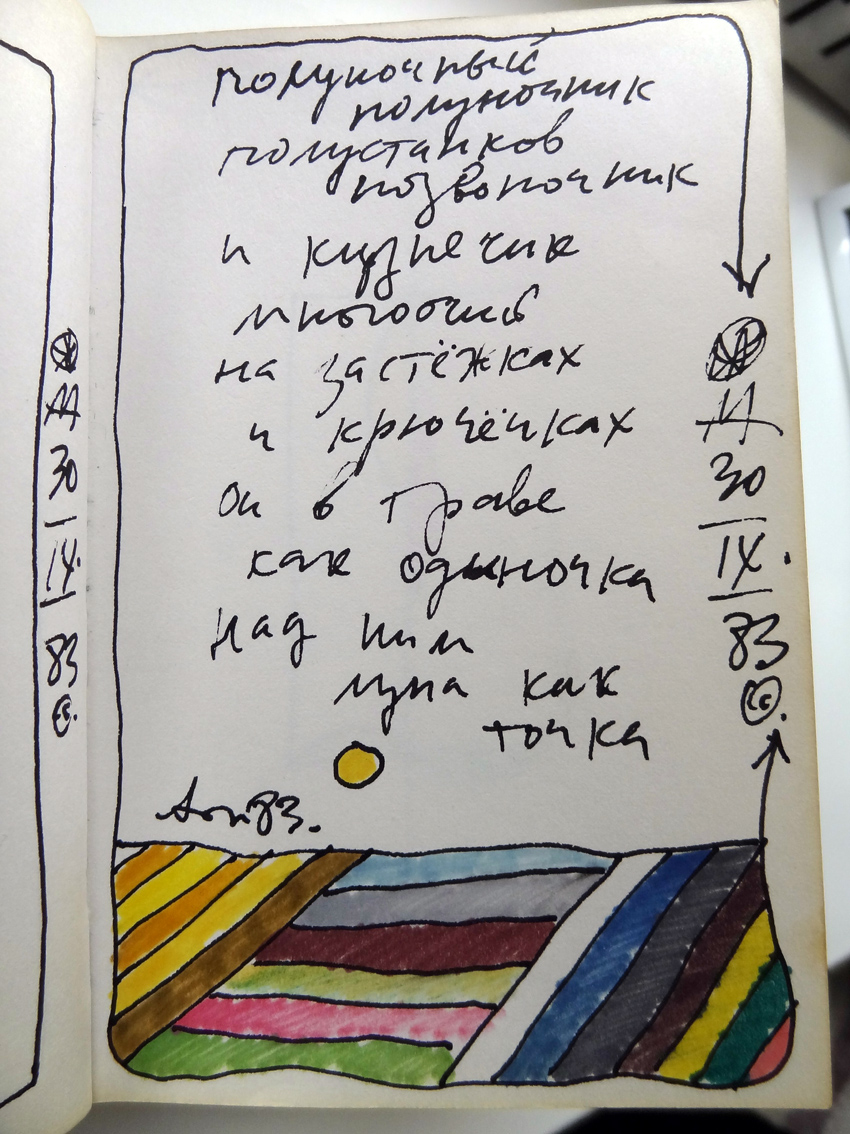 полуночный
полуночник
полустанков
позвоночник
и кузнечик
многоочий
на застёжках
и крючёчках
он в траве
как одиночка
над ним
луна как
точка
83.
30
IX.
83
30
IX.
83